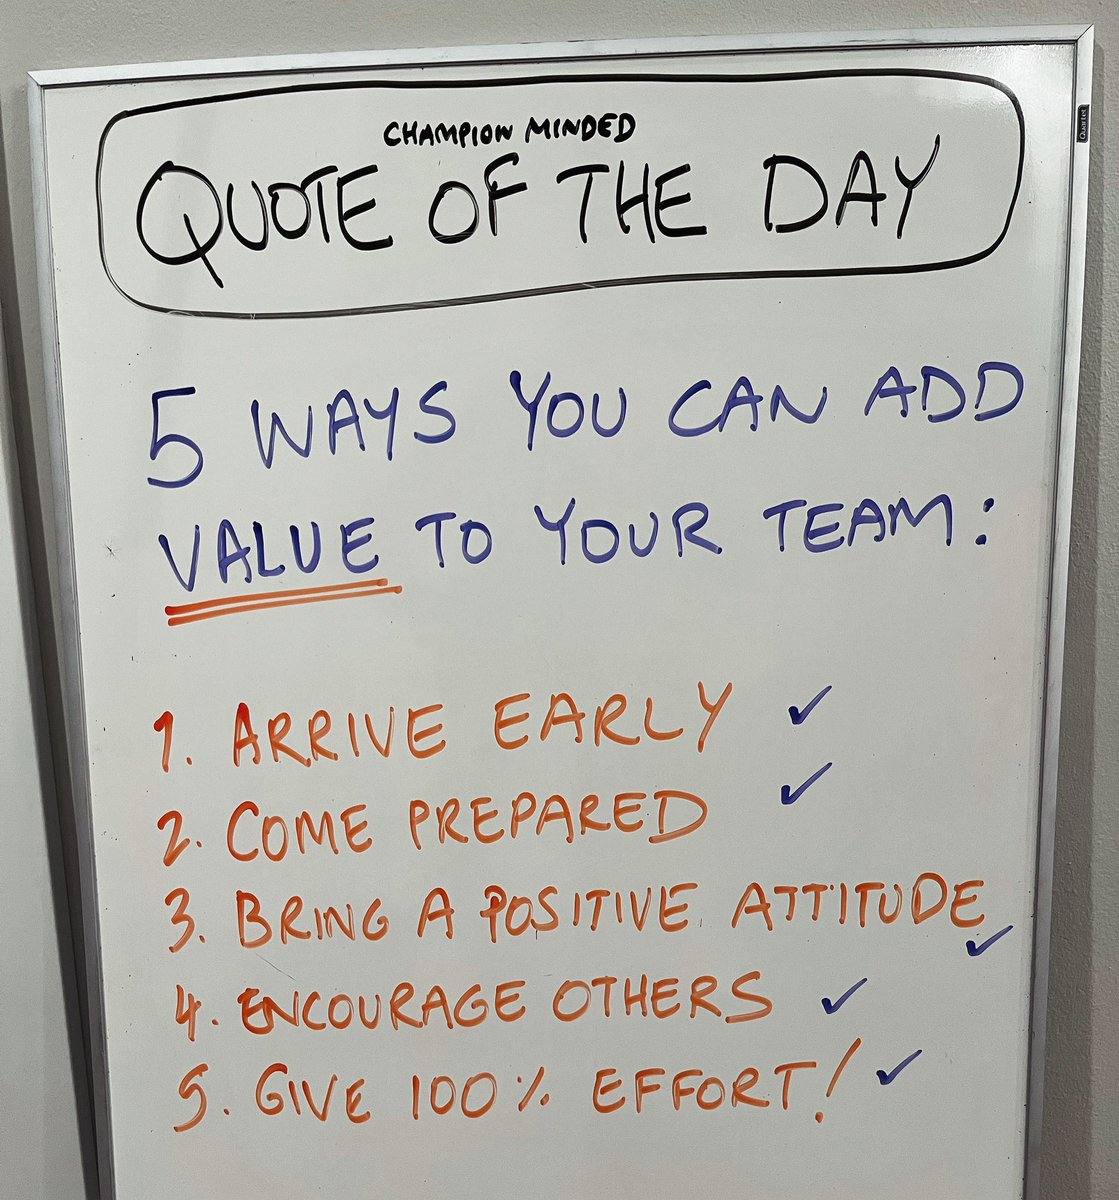 CHAMPION MINDED
QUOTE OF THE DAY
Quartet
5 WAYS YOU CAN ADD
VALUE TO YOUR TEAM:
1. ARRIVE EARLY ✓
2. COME PREPARED ✓
3. BRING A POSITIVE ATTITUDE ✓
4. ENCOURAGE OTHERS ✓
5. GIVE 100% EFFORT! ✓